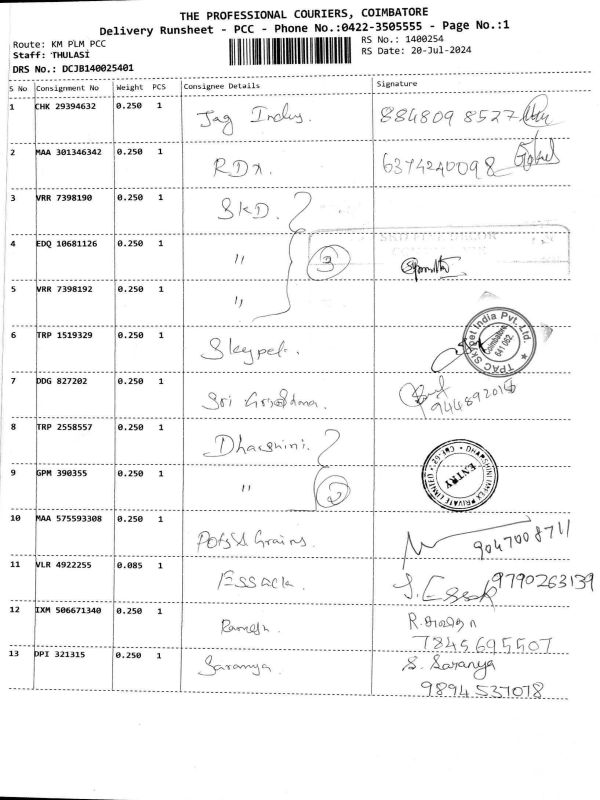 THE PROFESSIONAL COURIERS, COIMBATORE
Delivery Runsheet - PCC - Phone No.:0422-3505555 - Page No.:1
Route: KM PLM PCC
RS No.: 1400254
Staff: THULASI
RS Date: 20-Jul-2024
DRS No.: DCJB140025401
S No Consignment No Weight PCS Consignee Details Signature
1 CHK 29394632 0.250 1 Jag Indus. 884809 8527
2 MAA 301346342 0.250 1 RDX. 6374240098 Gokul
3 VRR 7398190 0.250 1 SKD.
4 EDQ 10681126 0.250 1 " 3
5 VRR 7398192 0.250 1 "
6 TRP 1519329 0.250 1 Skypet. TPAC Skypet India Pvt. Ltd. Coimbatore 641 062.
7 DDG 827202 0.250 1 Sri
8 TRP 2558557 0.250 1 Dharshini.
9 GPM 390355 0.250 1 " 2 ENTRY PRIVATE LIMITED
10 MAA 575593308 0.250 1 Pots & Grains. 9047008711
11 VLR 4922255 0.085 1 ESSACK. S. Essak 9790263139
12 IXM 506671340 0.250 1 Ramesh. 7845695507
13 DPI 321315 0.250 1 Saranya. S. Saranya
9894537078